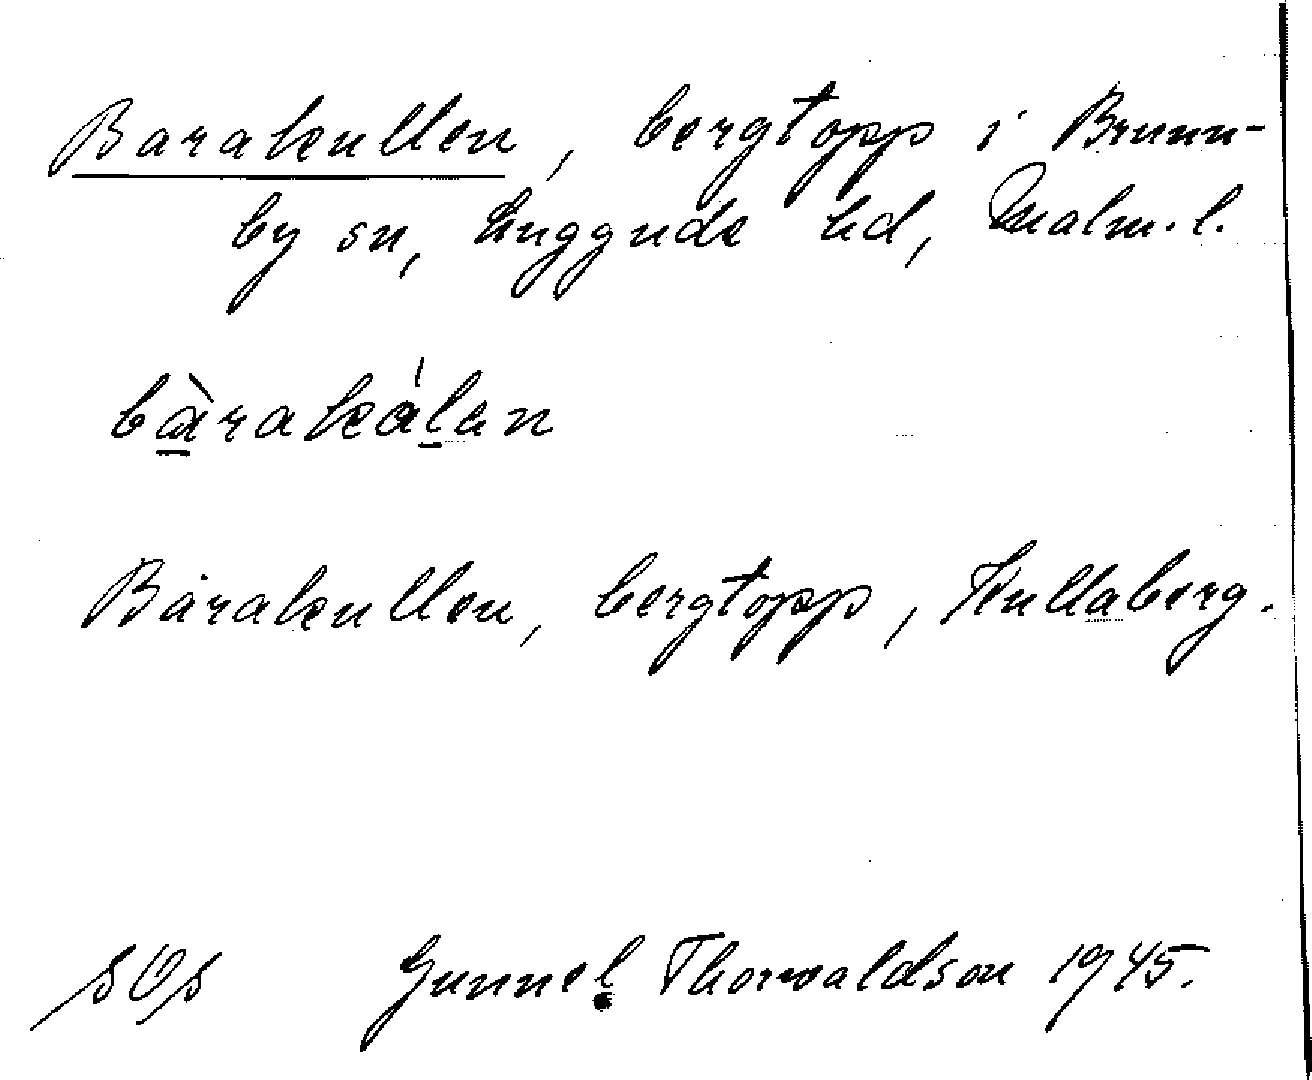 Barakullen, bergtopp i Brunn-
by sn, Luggude hd, Malm. l.
bàrakålan
Bårakullen, bergtopp, Kullaberg.
Gunnel Thorvaldson 1945.